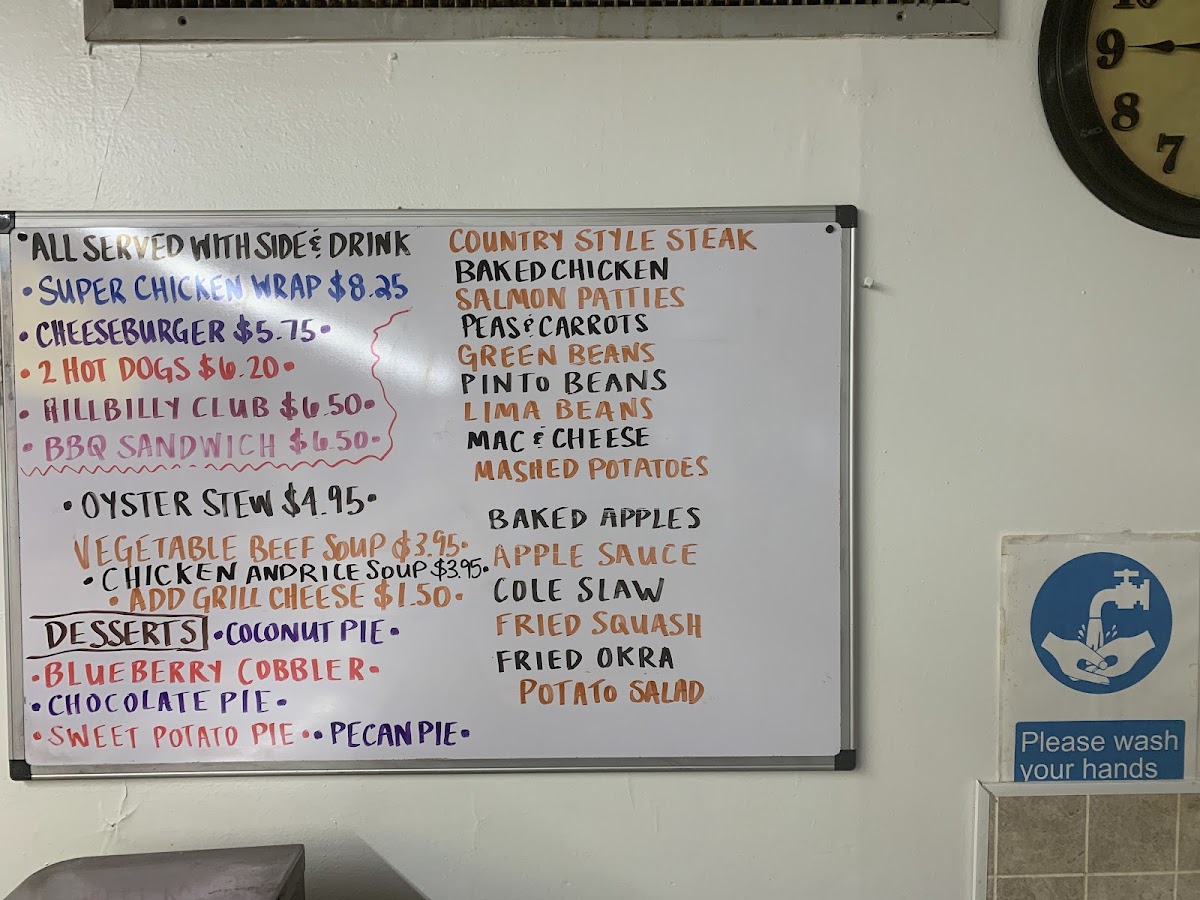 •ALL SERVED WITH SIDE & DRINK
•SUPER CHICKEN WRAP $8.25
•CHEESEBURGER $5.75•
•2 HOT DOGS $6.20•
•HILLBILLY CLUB $6.50•
•BBQ SANDWICH $6.50•
•OYSTER STEW $4.95•
VEGETABLE BEEF SOUP $3.95•
•CHICKEN AND RICE SOUP $3.95•
•ADD GRILL CHEESE $1.50•
DESSERTS •COCONUT PIE•
•BLUEBERRY COBBLER•
•CHOCOLATE PIE•
•SWEET POTATO PIE• •PECAN PIE•
COUNTRY STYLE STEAK
BAKED CHICKEN
SALMON PATTIES
PEAS & CARROTS
GREEN BEANS
PINTO BEANS
LIMA BEANS
MAC & CHEESE
MASHED POTATOES
BAKED APPLES
APPLE SAUCE
COLE SLAW
FRIED SQUASH
FRIED OKRA
POTATO SALAD
10
9
8
7
Please wash
your hands